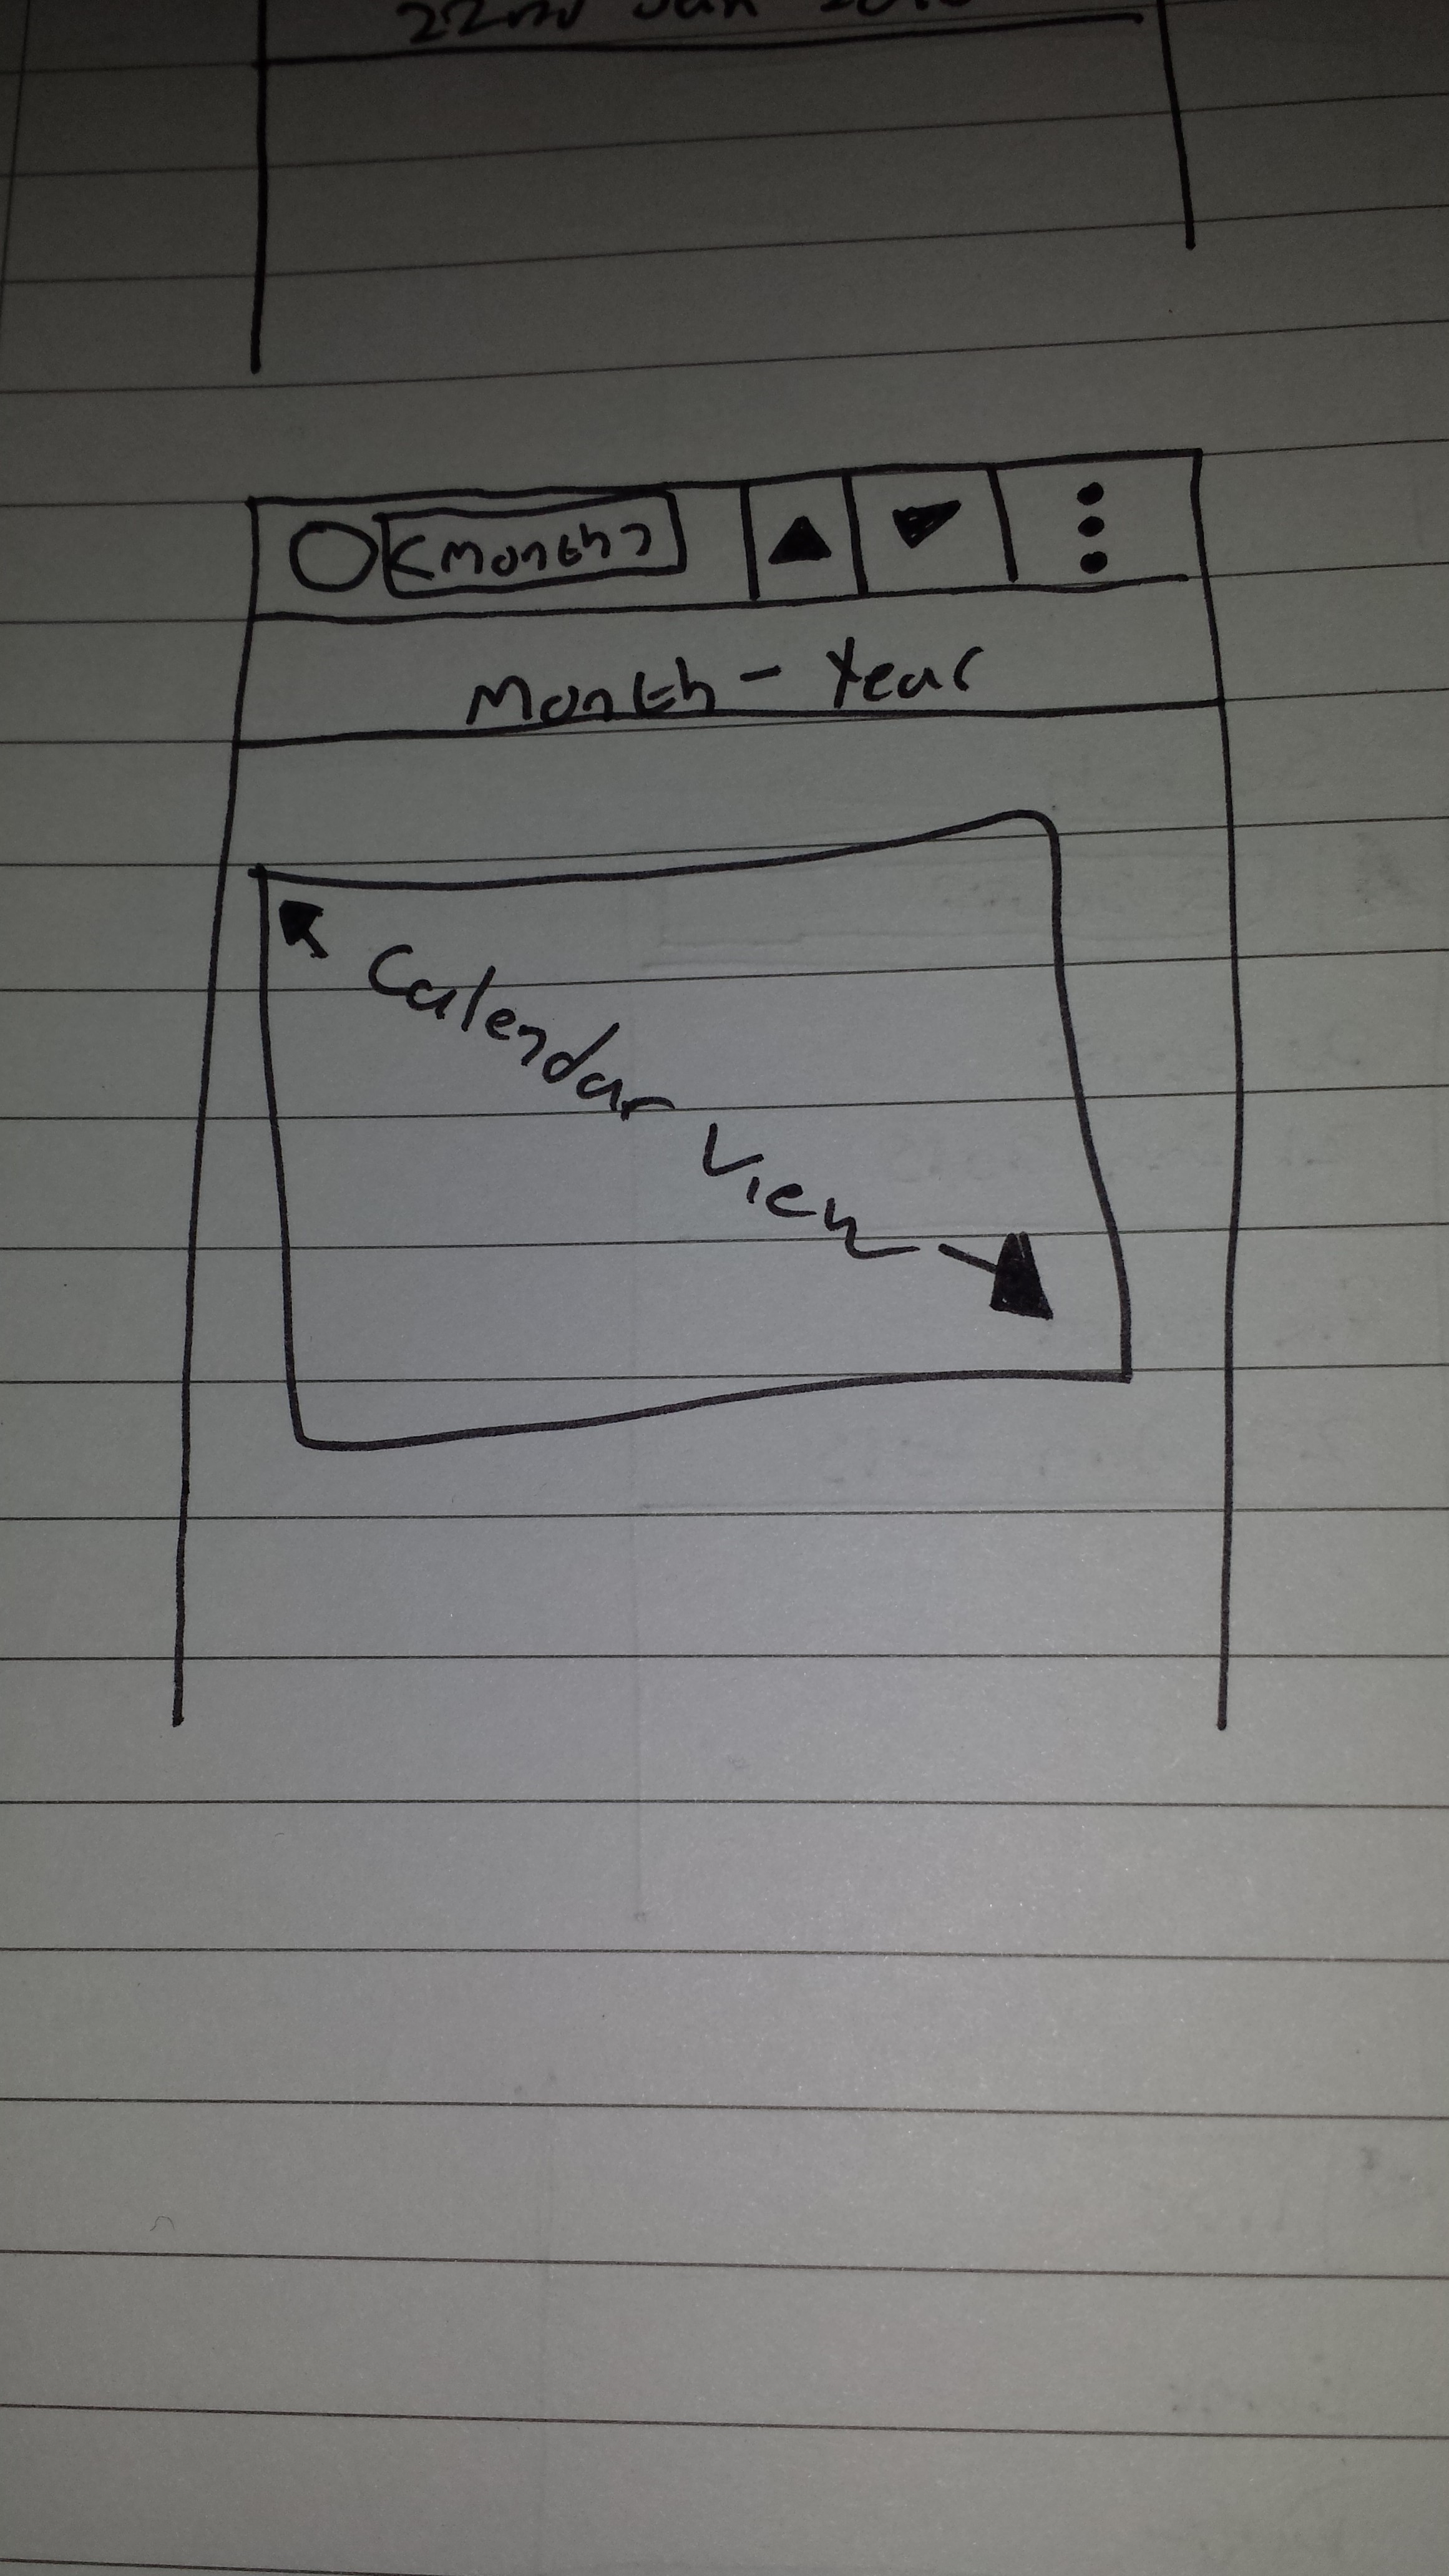 22nd Jan
<Month>
Month - Year
Calendar View